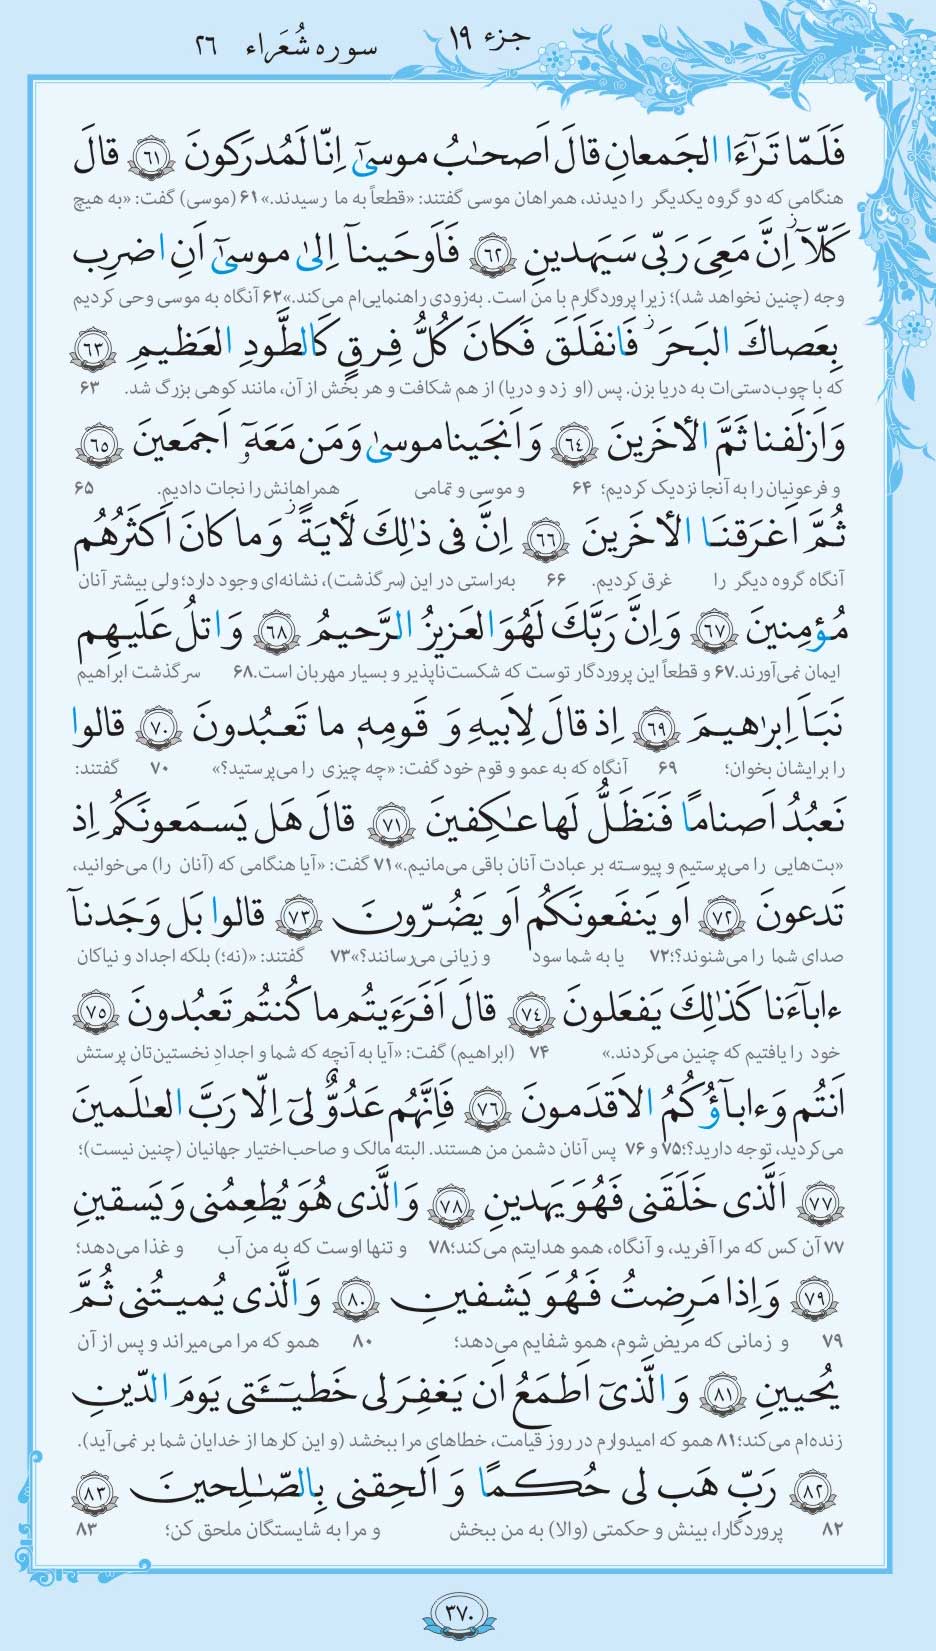 جزء ۱۹
سوره شُعَراء ۲۶
فَلَمّا تَرٰٓءَا الجَمعانِ قالَ اَصحٰبُ موسىٰٓ اِنّا لَمُدرَكونَ ﴿٦١﴾ قالَ
هنگامی که دو گروه یکدیگر را دیدند، همراهان موسی گفتند: «قطعاً به ما رسیدند.»۶۱ (موسی) گفت: «به هیچ
كَلّآ ۖ اِنَّ مَعِىَ رَبّى سَيَهدينِ ﴿٦٢﴾ فَاَوحَينآ اِلىٰ موسىٰٓ اَنِ اضرِب
وجه (چنین نخواهد شد)؛ زیرا پروردگارم با من است. به‌زودی راهنمایی‌ام می‌کند.»۶۲ آنگاه به موسی وحی کردیم
بِعَصاكَ البَحرَ ۖ فَانفَلَقَ فَكانَ كُلُّ فِرقٍ كَالطَّودِ العَظيمِ ﴿٦٣﴾
که با چوب‌دستی‌ات به دریا بزن. پس (او زد و دریا) از هم شکافت و هر بخش از آن، مانند کوهی بزرگ شد. ۶۳
وَاَزلَفنا ثَمَّ الأٰخَرينَ ﴿٦٤﴾ وَاَنجَينا موسىٰ وَمَن مَعَهٓ اَجمَعينَ ﴿٦٥﴾
و فرعونیان را به آنجا نزدیک کردیم؛ ۶۴ و موسی و تمامی همراهانش را نجات دادیم. ۶۵
ثُمَّ اَغرَقنَا الأٰخَرينَ ﴿٦٦﴾ اِنَّ فى ذٰلِكَ لَأٰيَةً ۖ وَما كانَ اَكثَرُهُم
آنگاه گروه دیگر را غرق کردیم. ۶۶ به‌راستی در این (سرگذشت)، نشانه‌ای وجود دارد؛ ولی بیشتر آنان
مُؤمِنينَ ﴿٦٧﴾ وَاِنَّ رَبَّكَ لَهُوَ العَزيزُ الرَّحيمُ ﴿٦٨﴾ وَاتلُ عَلَيهِم
ایمان نمی‌آورند.۶۷ و قطعاً این پروردگار توست که شکست‌ناپذیر و بسیار مهربان است.۶۸ سرگذشت ابراهیم
نَبَاَ اِبرٰهيمَ ﴿٦٩﴾ اِذ قالَ لِاَبيهِ وَ قَومِهٖ ما تَعبُدونَ ﴿٧٠﴾ قالوا
را برایشان بخوان؛ ۶۹ آنگاه که به عمو و قوم خود گفت: «چه چیزی را می‌پرستید؟» ۷۰ گفتند:
نَعبُدُ اَصنامًا فَنَظَلُّ لَها عٰكِفينَ ﴿٧١﴾ قالَ هَل يَسمَعونَكُم اِذ
«بت‌هایی را می‌پرستیم و پیوسته بر عبادت آنان باقی می‌مانیم.»۷۱ گفت: «آیا هنگامی که (آنان را) می‌خوانید،
تَدعونَ ﴿٧٢﴾ اَو يَنفَعونَكُم اَو يَضُرّونَ ﴿٧٣﴾ قالوا بَل وَجَدنآ
صدای شما را می‌شنوند؟؛۷۲ یا به شما سود و زیانی می‌رسانند؟»۷۳ گفتند: «(نه؛) بلکه اجداد و نیاکان
ءابآءَنا كَذٰلِكَ يَفعَلونَ ﴿٧٤﴾ قالَ اَفَرَءَيتُم ما كُنتُم تَعبُدونَ ﴿٧٥﴾
خود را یافتیم که چنین می‌کردند.» ۷۴ (ابراهیم) گفت: «آیا به آنچه که شما و اجدادِ نخستین‌تان پرستش
اَنتُم وَءابآؤُكُمُ الاَقدَمونَ ﴿٧٦﴾ فَاِنَّهُم عَدُوٌّ لىٓ اِلّا رَبَّ العٰلَمينَ
می‌کردید، توجه دارید؟؛۷۵ و ۷۶ پس آنان دشمن من هستند. البته مالک و صاحب‌اختیار جهانیان (چنین نیست)؛
﴿٧٧﴾ اَلَّذى خَلَقَنى فَهُوَ يَهدينِ ﴿٧٨﴾ وَالَّذى هُوَ يُطعِمُنى وَيَسقينِ
۷۷ آن کس که مرا آفرید، و آنگاه، همو هدایتم می‌کند؛۷۸ و تنها اوست که به من آب و غذا می‌دهد؛
﴿٧٩﴾ وَاِذا مَرِضتُ فَهُوَ يَشفينِ ﴿٨٠﴾ وَالَّذى يُميتُنى ثُمَّ
۷۹ و زمانی که مریض شوم، همو شفایم می‌دهد؛ ۸۰ همو که مرا می‌میراند و پس از آن
يُحيينِ ﴿٨١﴾ وَالَّذىٓ اَطمَعُ اَن يَغفِرَ لى خَطيـٓـَٔتى يَومَ الدّينِ
زنده‌ام می‌کند؛۸۱ همو که امیدوارم در روز قیامت، خطاهای مرا ببخشد (و این کارها از خدایان شما بر نمی‌آید).
﴿٨٢﴾ رَبِّ هَب لى حُكمًا وَ اَلحِقنى بِالصّٰلِحينَ ﴿٨٣﴾
۸۲ پروردگارا، بینش و حکمتی (والا) به من ببخش و مرا به شایستگان ملحق کن؛ ۸۳
۳۷۰